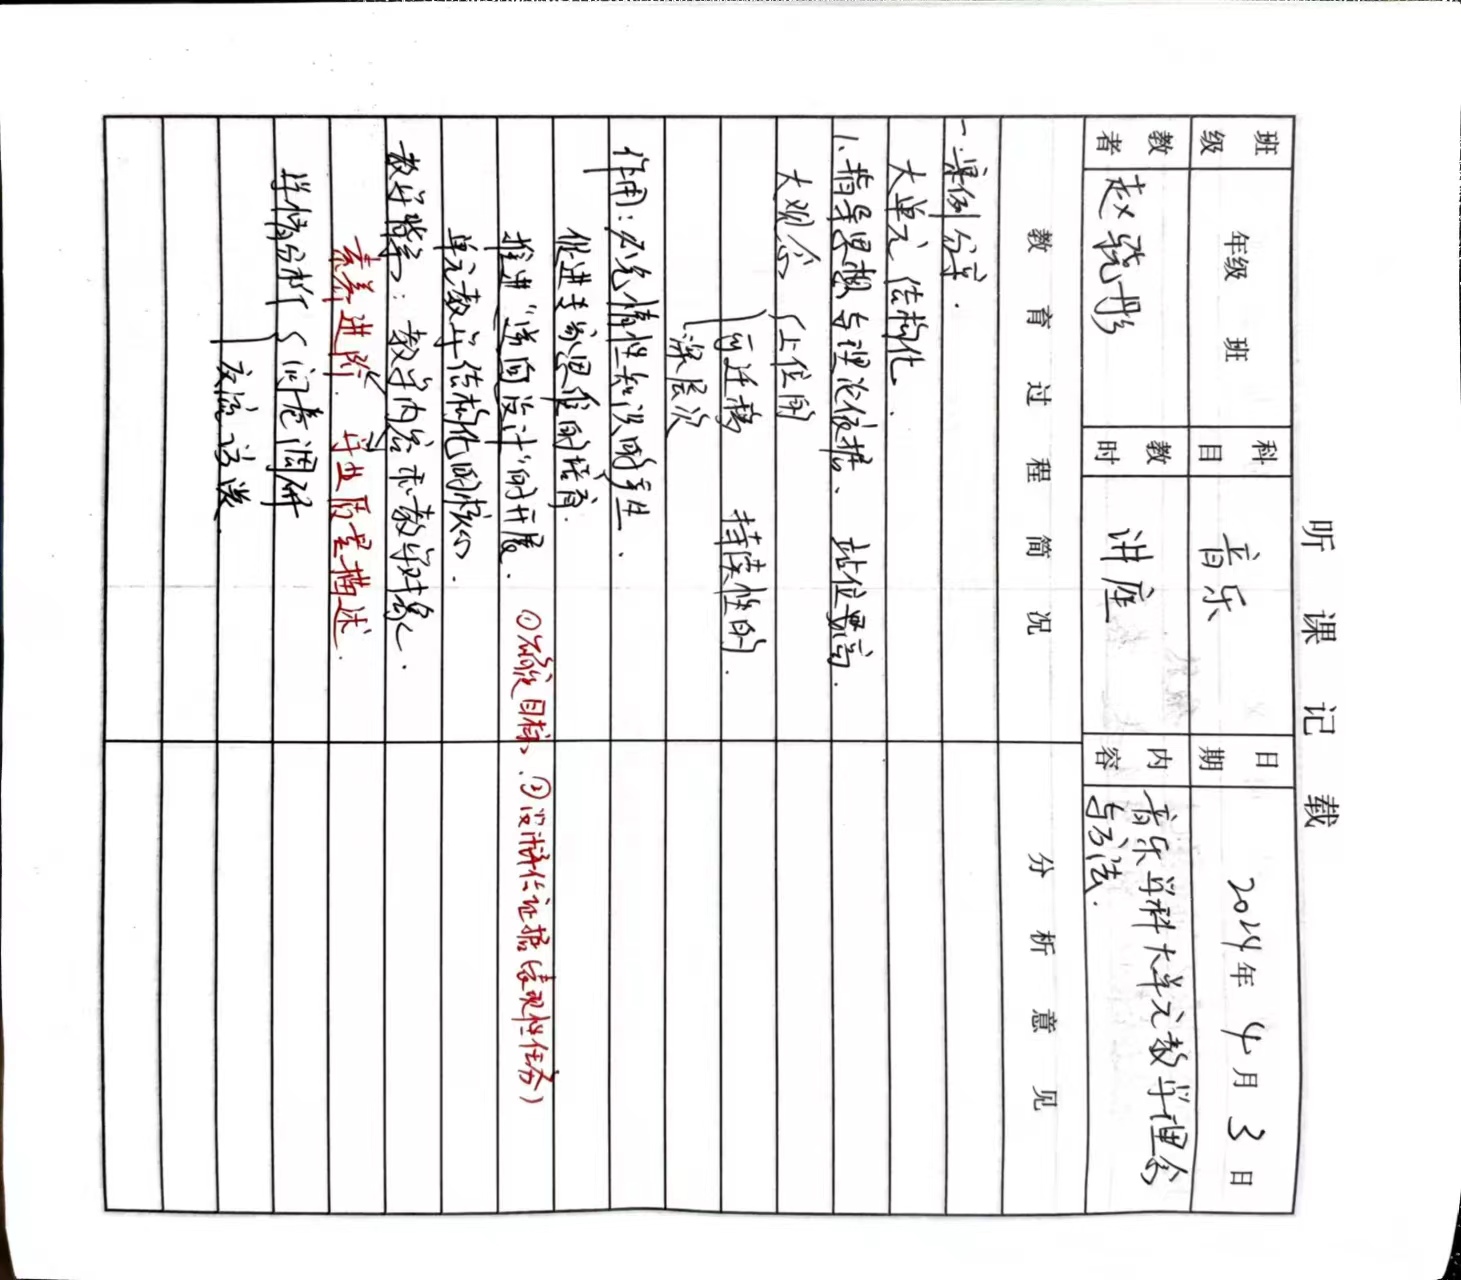 听课记载
班级 年级 班 科目 音乐 日期 2024年 4月 3日
教者 赵晓彤 教时 讲座 内容 音乐学科大单元教学理念
与方法.
教育过程简况 分析意见
一.案例分享.
大单元 结构化.
1.指导思想与理论依据、站位要高.
大观念 上位的
可迁移 持续性的.
深层次
作用:避免惰性知识的产生.
促进专家思维的培育.
推进"逆向设计"的开展. ①确定目标、②设计评估证据(表现性任务)
单元教学结构化的核心.
教学特点:教学内容和教学对象.
素养进阶 学业质量描述.
学情分析 问卷调研
交流访谈.